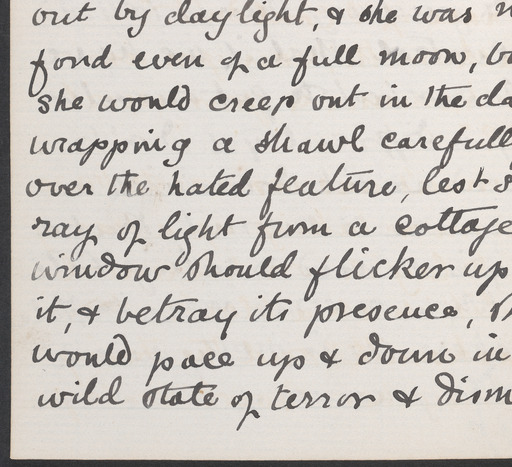 out by daylight, & she was
fond even of a full moon,
she would creep out in the
wrapping a shawl
over the hated feature, lest
ray of light from a cottage
window should flicker up
it, & betray its presence,
would pace up & down in
wild state of terror &